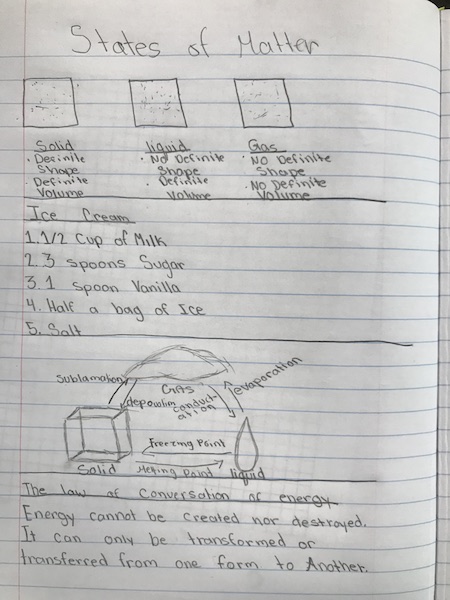 States of Matter
Solid
· Definite
Shape
· Definite
Volume
liquid
· No Definite
Shape
· Definite
Volume
Gas
· No Definite
Shape
· No Definite
Volume
Ice Cream
1. 1/2 Cup of Milk
2. 3 spoons Sugar
3. 1 spoon Vanilla
4. Half a bag of Ice
5. Salt
Sublamation
Gas
evaporation
conduct-
ation
Freezing Point
Melting Point
Solid
liquid
The law of conversation of energy
Energy cannot be created nor destroyed.
It can only be transformed or
transferred from one form to Another.